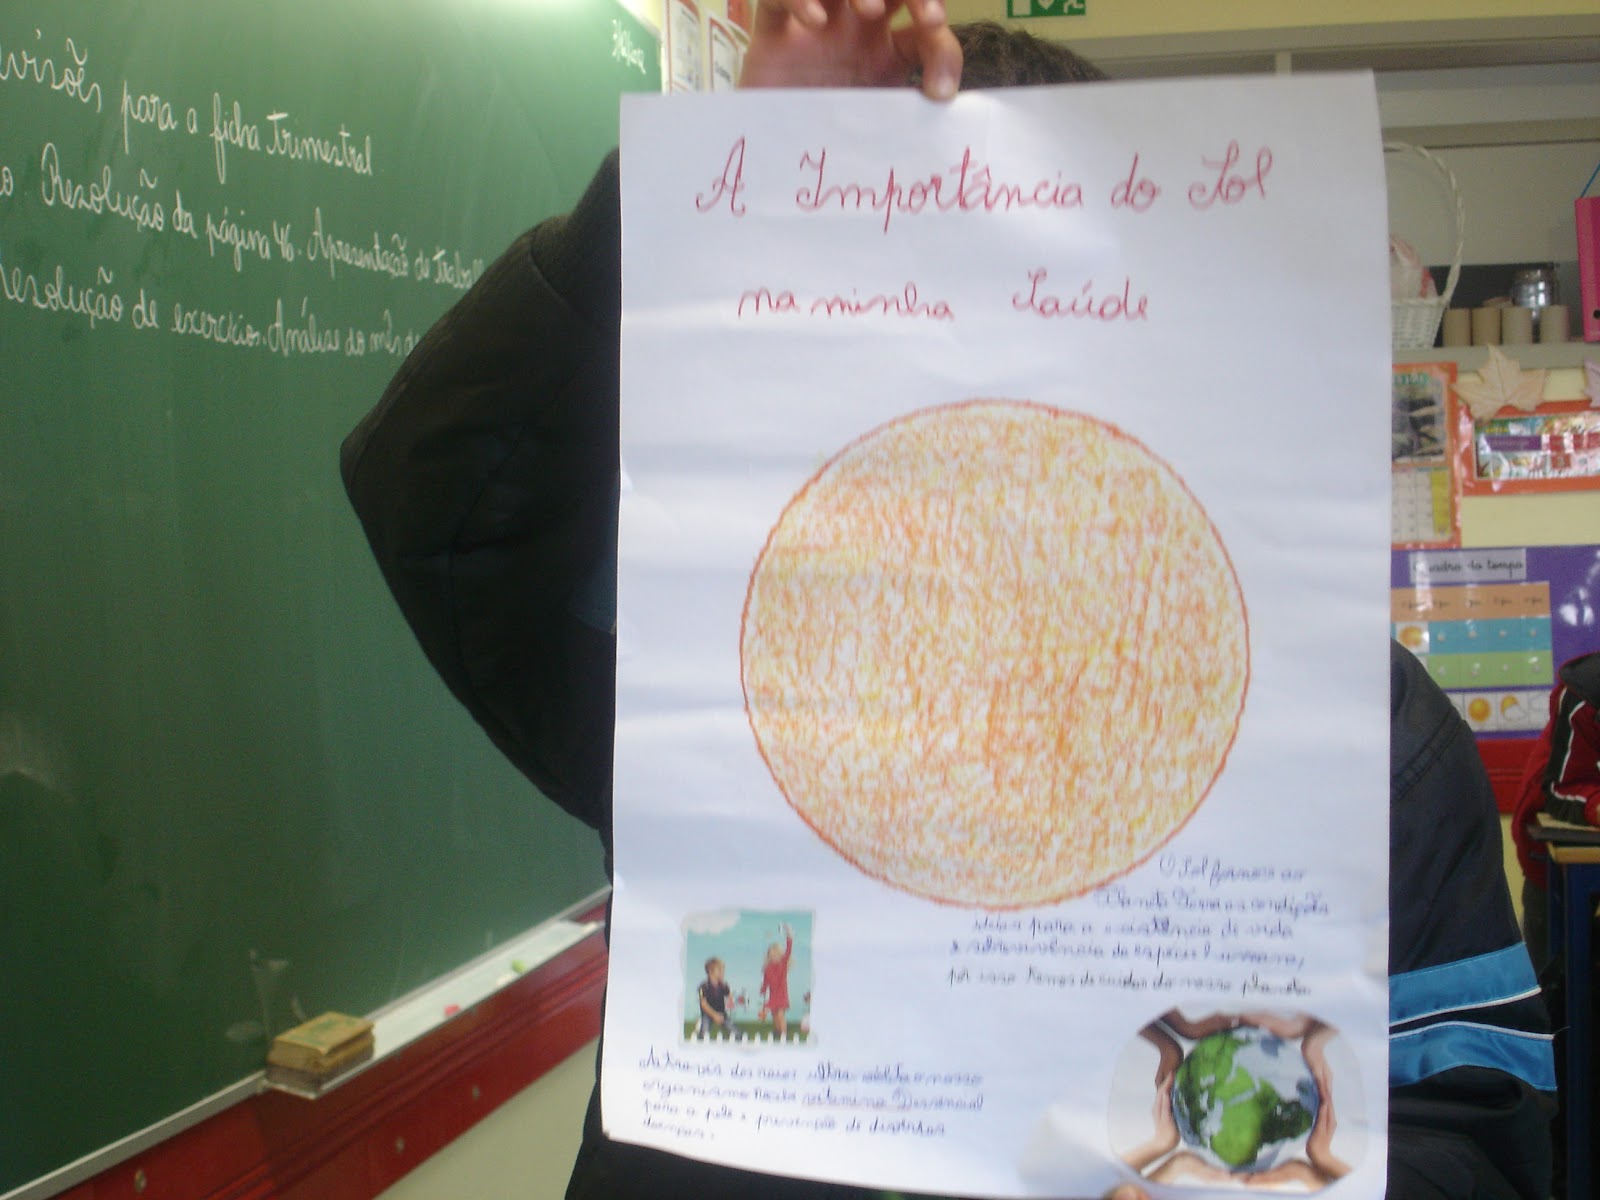 visões para a ficha trimestral
Resolução da página 46. Apresentação de trabal
resolução de exercícios. Análise do mês de
A Importância do Sol
na minha Saúde
O Sol fornece ao
Planeta Terra as condições
ideias para a existência de vida
e sobrevivência da espécie humana,
por isso temos de cuidar do nosso planeta
Através dos raios ultra violeta o nosso
organismo recebe vitamina D essencial
para a pele e prevenção de diversas
doenças.
Quadro do tempo